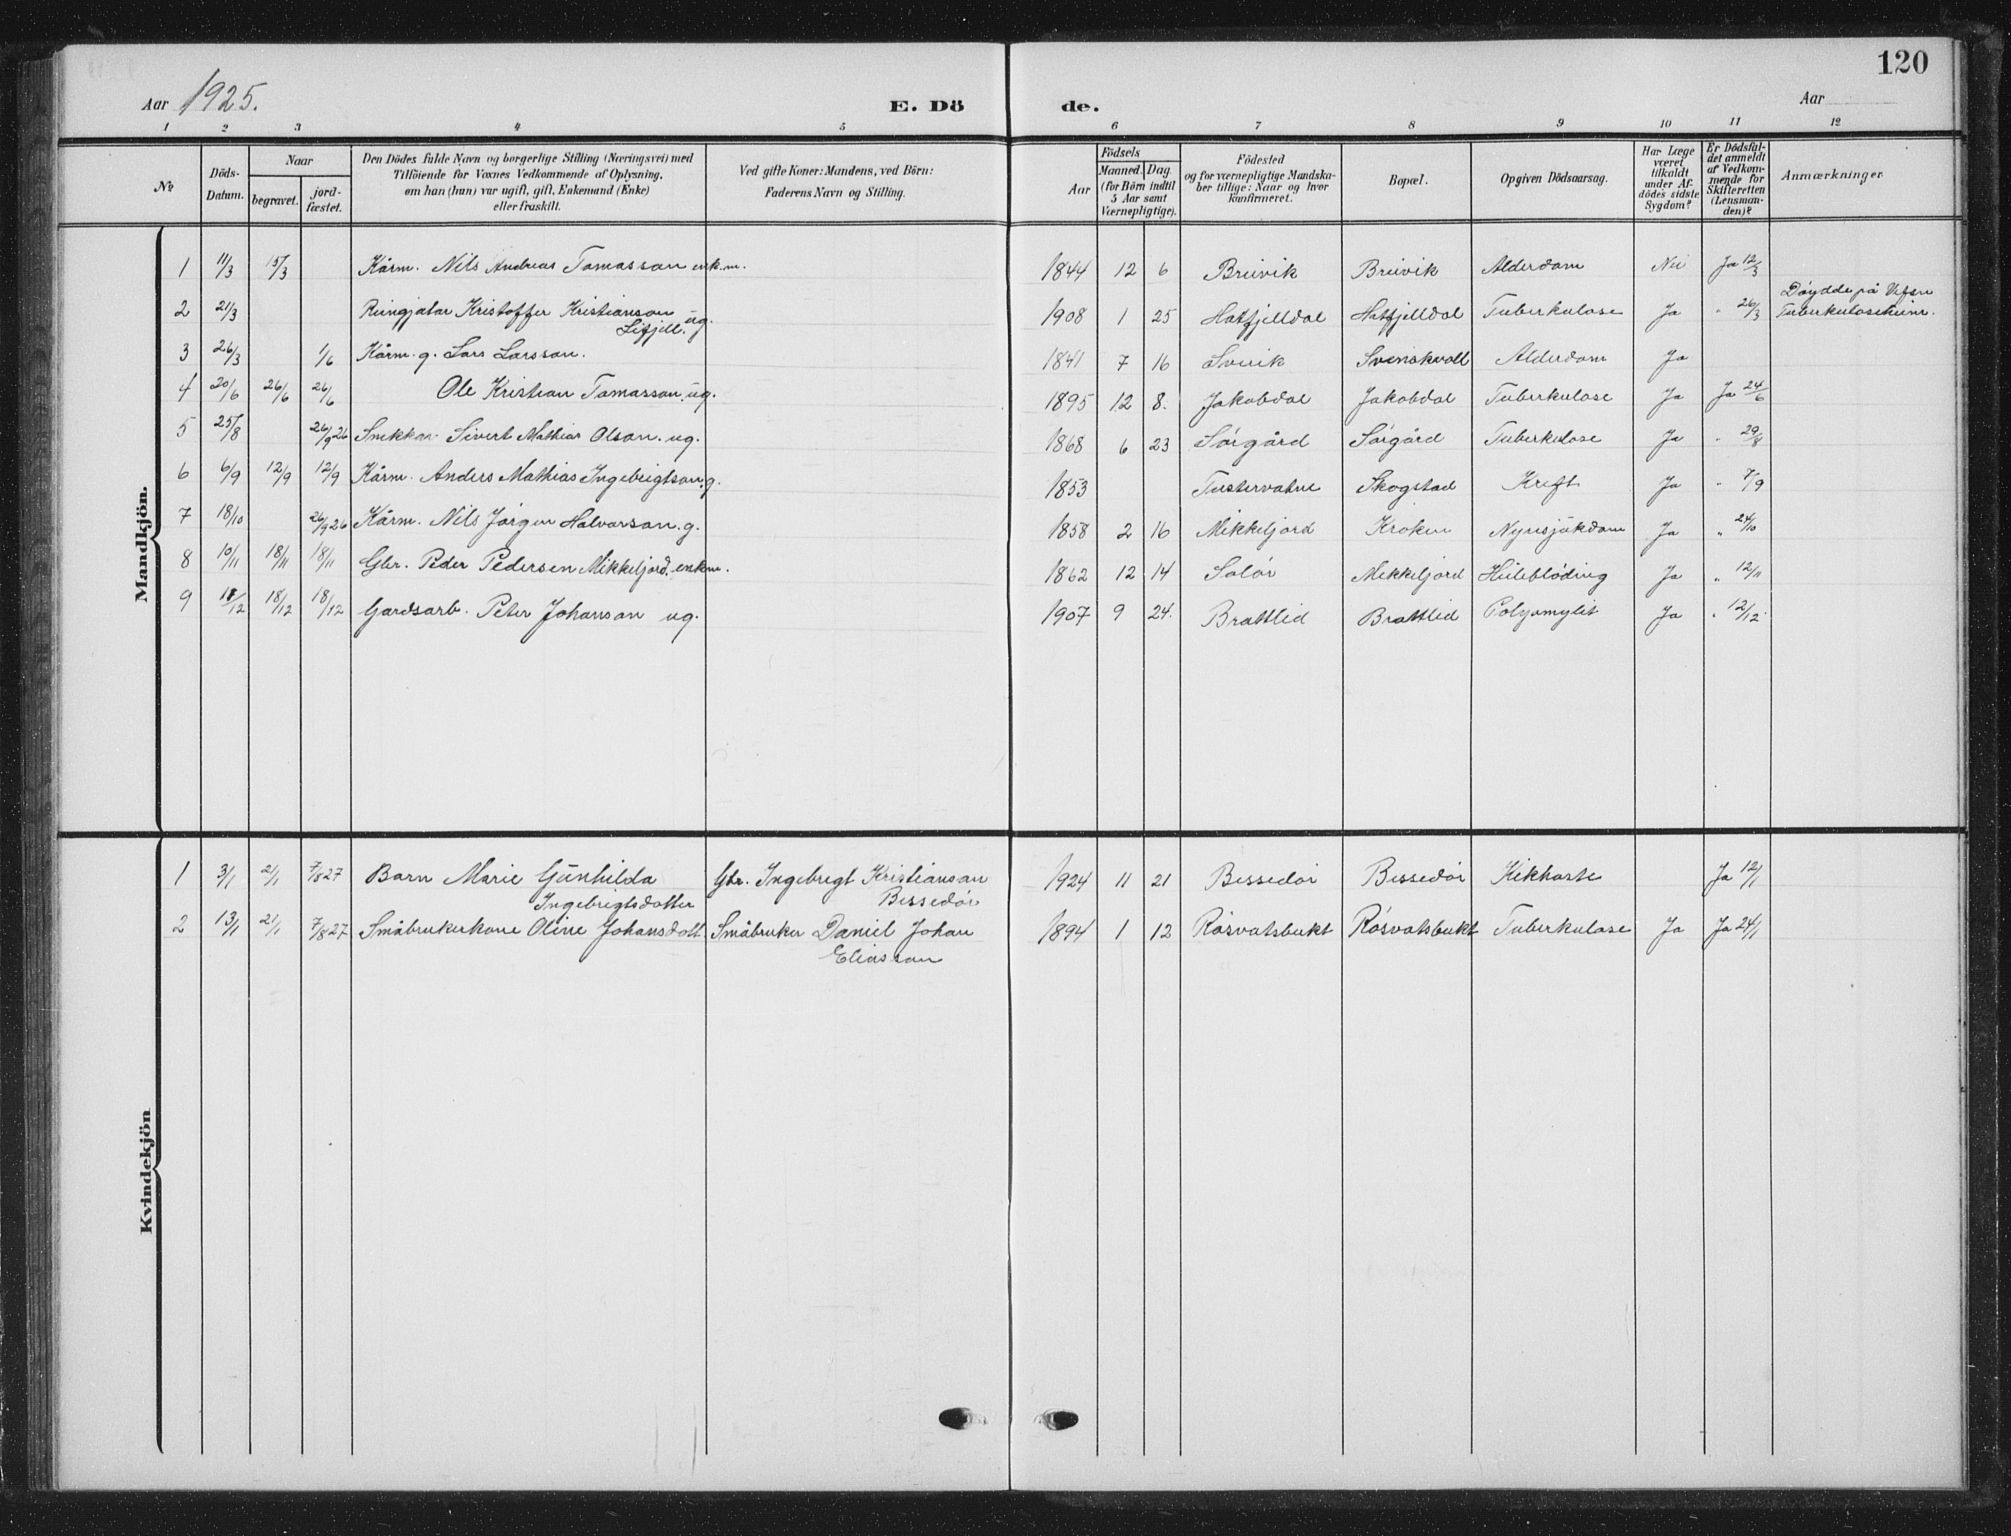 120
Aar 1925. E. Dö de. Aar
1 2 3 4 5 6 7 8 9 10 11 12
№ Döds-Datum. Naar begravet. jord-fæstet. Den Dödes fulde Navn og borgerlige Stilling (Næringsvei) med Tilföiende for Voxnes Vedkommende af Oplysning, om han (hun) var ugift, gift, Enkemand (Enke) eller fraskilt. Ved gifte Koner: Mandens, ved Börn: Faderens Navn og Stilling. Födsels Aar Maaned. Dag. (for Börn indtil 5 Aar samt Værnepligtige). Födested og for værnepligtige Mandskaber tillige: Naar og hvor konfirmeret. Bopæl. Opgiven Dödsaarsag. Har Læge været tilkaldt under Afdödes sidste Sygdom? Er Dödsfaldet anmeldt af Vedkommende for Skifteretten (Lensmanden)? Anmærkninger
Mandkjön.
1 11/3 15/3 Kårm. Nils Andreas Tomasson enk.m. 1844 12 6 Breivik Breivik Alderdom Nei Ja 12/3
2 21/3 Reingjætar Kristoffer Kristianson Lifjell. ug. 1908 1 25 Hatfjelldal Hatfjelldal Tuberkulose Ja " 26/3 Döydde på Vefsn Tuberkuloseheim.
3 26/3 1/6 Kårm. g. Lars Larsson. 1841 7 16 Svenskvoll Alderdom Ja
4 20/6 26/6 26/6 Ole Kristian Tomasson ug. 1895 12 8. Jakobdal Jakobdal Tuberkulose Ja Ja 24/6
5 25/8 26/9 26 Snekkar Sivert Mathias Olson. ug. 1868 6 23 Sörgård Sörgård Tuberkulose Ja " 29/8
6 6/9 12/9 12/9 Kårm. Anders Mathias Ingebrigtson g. 1853 Tustervatne Skogstad Kreft Ja " 7/9
7 18/10 26/9 26 Kårm. Nils Jörgen Halvorson. g. 1858 2 16 Mikkeljord Kroken Nyresjukdom Ja " 24/10
8 10/11 18/11 18/11 Gbr. Peder Pedersen Mikkeljord. enkm. 1862 12 14 Solör Mikkeljord Heileblöding Ja " 12/11
9 11/12 18/12 18/12 Gardsarb. Peter Johanson ug. 1907 9 24. Brattlid Brattlid Polyomylit Ja " 12/12
Kvindekjön
1 3/1 21/1 7/8 27 Barn Marie Gunhilda Ingebrigtsdotter Gbr. Ingebrigt Kristianson Bessedör 1924 11 21 Bessedör Bessedör Kikhoste Ja 12/1
2 13/1 21/1 7/8 27 Småbrukerkone Oline Johansdott. Småbruker Daniel Johan Eliasson 1894 1 12 Rösvatsbukt Rösvatsbukt Tuberkulose Ja Ja 24/1